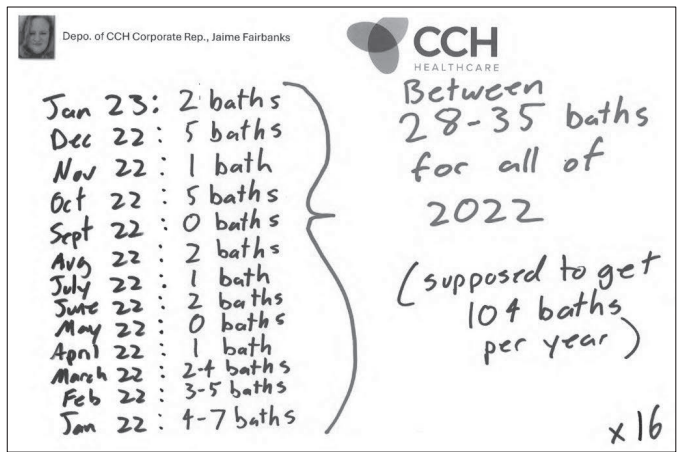 Depo. of CCH Corporate Rep., Jaime Fairbanks
CCH
HEALTHCARE
Jan 23: 2 baths
Dec 22: 5 baths
Nov 22: 1 bath
Oct 22: 5 baths
Sept 22: 0 baths
Aug 22: 2 baths
July 22: 1 bath
June 22: 2 baths
May 22: 0 baths
April 22: 1 bath
March 22: 2-4 baths
Feb 22: 3-5 baths
Jan 22: 4-7 baths
Between
28-35 baths
for all of
2022
(supposed to get
104 baths
per year)
x16